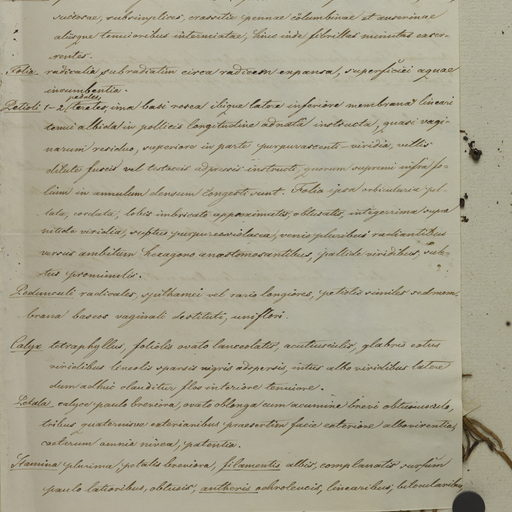 succosae, subsimplices, crassitie pennae columbinae et anserinae
aliisque tenuioribus intermixtae, hinc inde fibrillas minutas exser-
entes.
Folia radicalia subradiatim circa radicem expansa, superficiei aquae
incumbentia.
Petioli 1-2 pedales, teretes, ima basi rosea ibique latere inferiore membrana lineari
tenui albida in pollicis longitudine adnata instructa, quasi vagi-
narum residuo, superiore in parte purpurascenti-viridia, villis
dilute fuscis vel testaceis adpressis instructi, quorum supremi infra fo-
lium in annulum densum congesti sunt. Folia ipsa orbicularia pel-
tata, cordata, lobis imbricato approximatis, obtusatis, integerrima supra
nitide viridia, subtus purpureoviolacea, venis pluribus radiantibus
versus ambitum hexagono anastomosantibus, pallide viridibus, sub-
tus prominulis.
Pedunculi radicales, spithamei vel raro longiores, petiolis similes sed mem-
brana baseos vaginali destituti, uniflori.
Calyx tetraphyllus, foliolis ovato lanceolatis, acutiusculis, glabris extus
viridibus lineolis sparsis nigris adspersis, intus albo viridibus latere
dum adhuc clauditur flos interiore tenuiore.
Petala calyce paulo breviora, ovato oblonga cum acumine brevi obtusiusculo,
tribus quaternisve exterioribus praesertim facie exteriore albovirentia,
caeterum omnia nivea, patentia.
Stamina plurima, petalis breviora, filamentis albis, complanatis sursum
paulo latioribus, obtusis, antheris ochroleucis, linearibus, bilocularibus